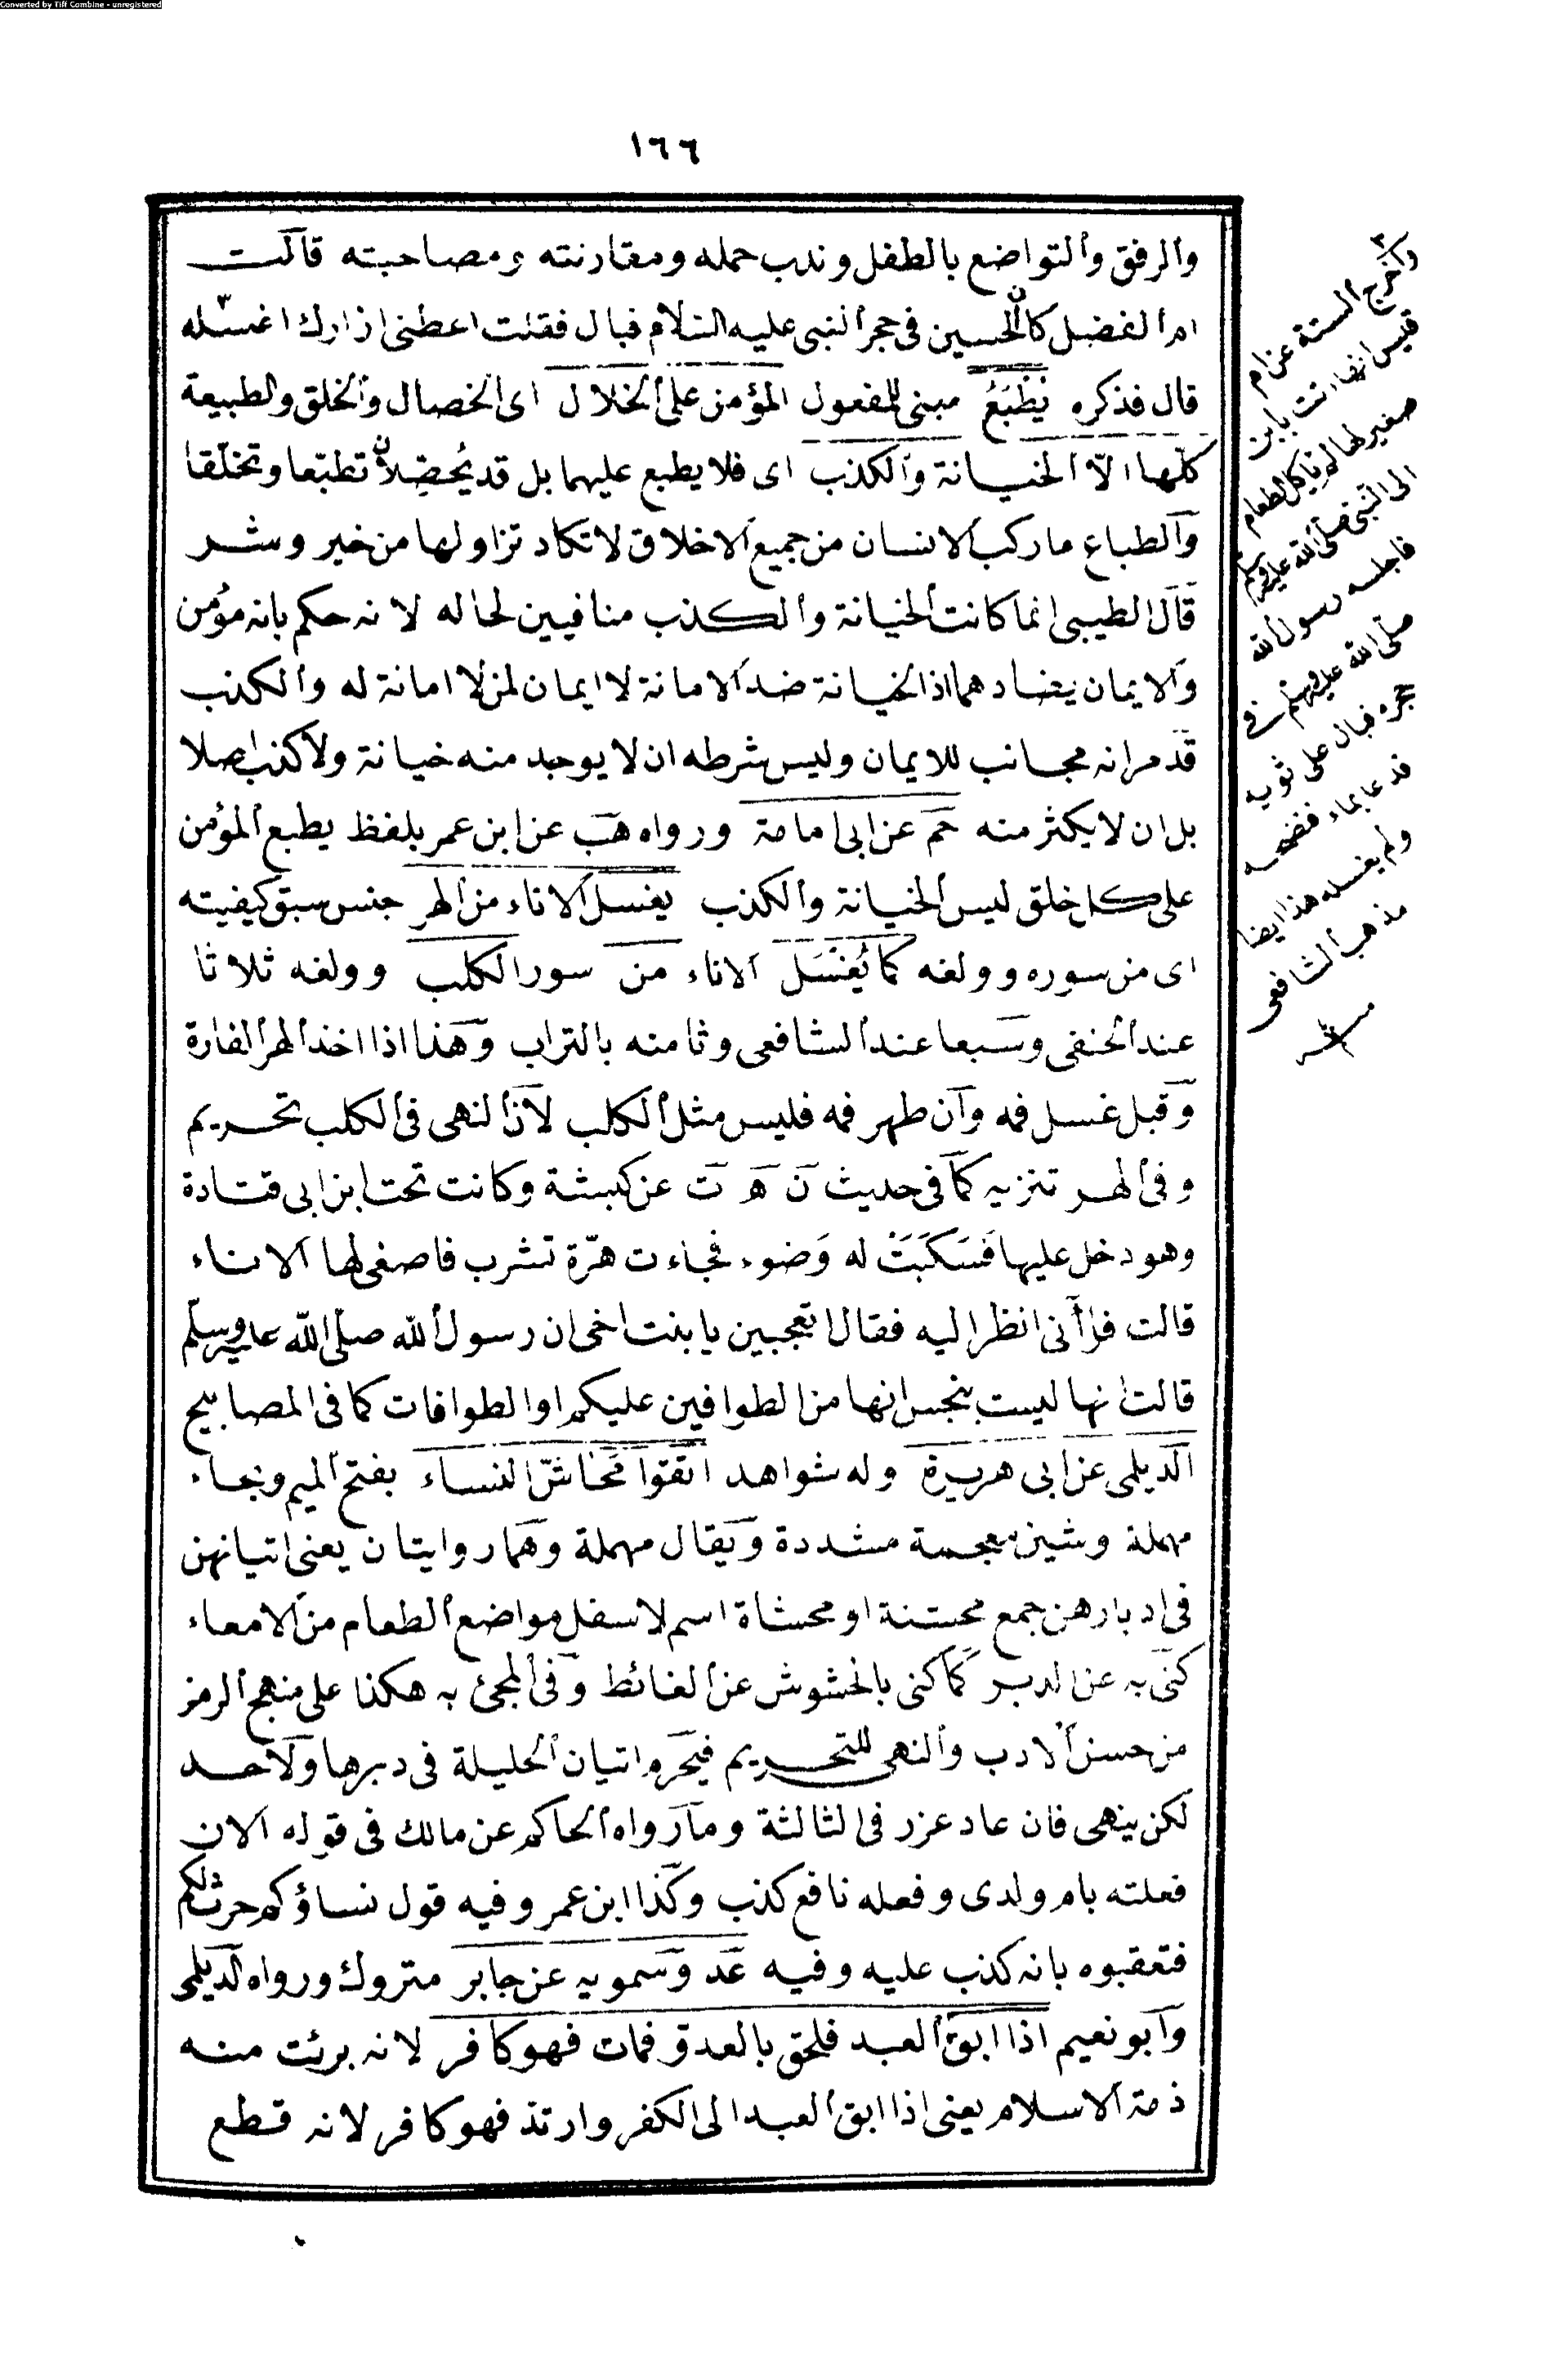 Converted by Tiff Combine - unregistered
١٦٦
والرفق والتواضع بالطفل وندب حمله ومقارنته ومصاحبته قالت
ام الفضل كان الحسين فى حجر النبى عليه السلام فبال فقلت اعطنى ازارك اغسله
قال فذكره يُطْبَعُ مبنى للمفعول المؤمن على الخلال اى الخصال والخلق والطبيعة
كلّها الّا الخيانة والكذب اى فلا يطبع عليهما بل قد يُحصّلان تطبّعا وتخلّقا
والطباع ما ركب الانسان من جميع الاخلاق لا تكاد تزاولها من خير وشر
قال الطيبى انما كانت الخيانة والكذب منافيين لحاله لانه حكم بانه مؤمن
والايمان يضادهما اذ الخيانة ضد الامانة لا ايمان لمن لا امانة له والكذب
قد مر انه مجانب للايمان وليس شرطه ان لا يوجد منه خيانة ولا كذب اصلا
بل ان لا يكثر منه حم عن ابى امامة ورواه هب عن ابن عمر بلفظ يطبع المؤمن
على كل خلق ليس الخيانة والكذب يغسل الاناء من الهر جنس سبق كيفيته
اى من سوره وولغه كما يُغْسَل الاناء من سور الكلب وولغه ثلاثا
عند الحنفى وسبعا عند الشافعى وثامنه بالتراب وهذا اذا اخذ الهر الفارة
وقبل غسل فمه وان طهر فمه فليس مثل الكلب لان النهى فى الكلب تحريم
وفى الهر تنزيه كما فى حديث ن ه ت عن كبشة وكانت تحت ابن ابى قتادة
وهو دخل عليها فسكبت له وَضوء فجاءت هرّة تشرب فاصغى لها الاناء
قالت فرآنى انظر اليه فقال اتعجبين يا بنت اخى ان رسول الله صلّى الله عليه وسلّم
قالت انها ليست بنجس انها من الطوافين عليكم او الطوافات كما فى المصابيح
الديلمى عن ابى هريرة وله شواهد اتقوا مَحَاشّ النساء بفتح الميم وبحاء
مهملة وشين معجمة مشددة ويقال مهملة وهما روايتان يعنى اتيانهن
فى ادبارهن جمع محشة او محشاة اسم لاسفل مواضع الطعام من الامعاء
كنّى به عن الدبر كما كنى بالحشوش عن الغائط وفى المجئ به هكذا على منهج الرمز
من حسن الادب والنهى للتحريم فيحرم اتيان الحليلة فى دبرها ولا حد
لكن ينهى فان عاد عزر فى الثالثة وما رواه الحاكم عن مالك فى قوله الان
فعلته بام ولدى وفعله نافع كذب وكذا ابن عمر وفيه قول نساؤكم حرث لكم
فتعقبوه بانه كذب عليه وفيه عد وسمويه عن جابر متروك ورواه الديلمى
وابو نعيم اذا ابق العبد فلحق بالعدو فمات فهو كافر لانه برئت منه
ذمة الاسلام يعنى اذا ابق العبد الى الكفر وارتد فهو كافر لانه قطع
واخرج الستة عن ام
قيس انها اتت بابن
صغير لها لم يأكل الطعام
الى النبى صلى الله عليه وسلم
فاجلسه رسول الله
صلى الله عليه وسلم فى
حجره فبال على ثوبه
فدعا بماء فنضحه
ولم يغسله هذا ايضا
مذهب الشافعى